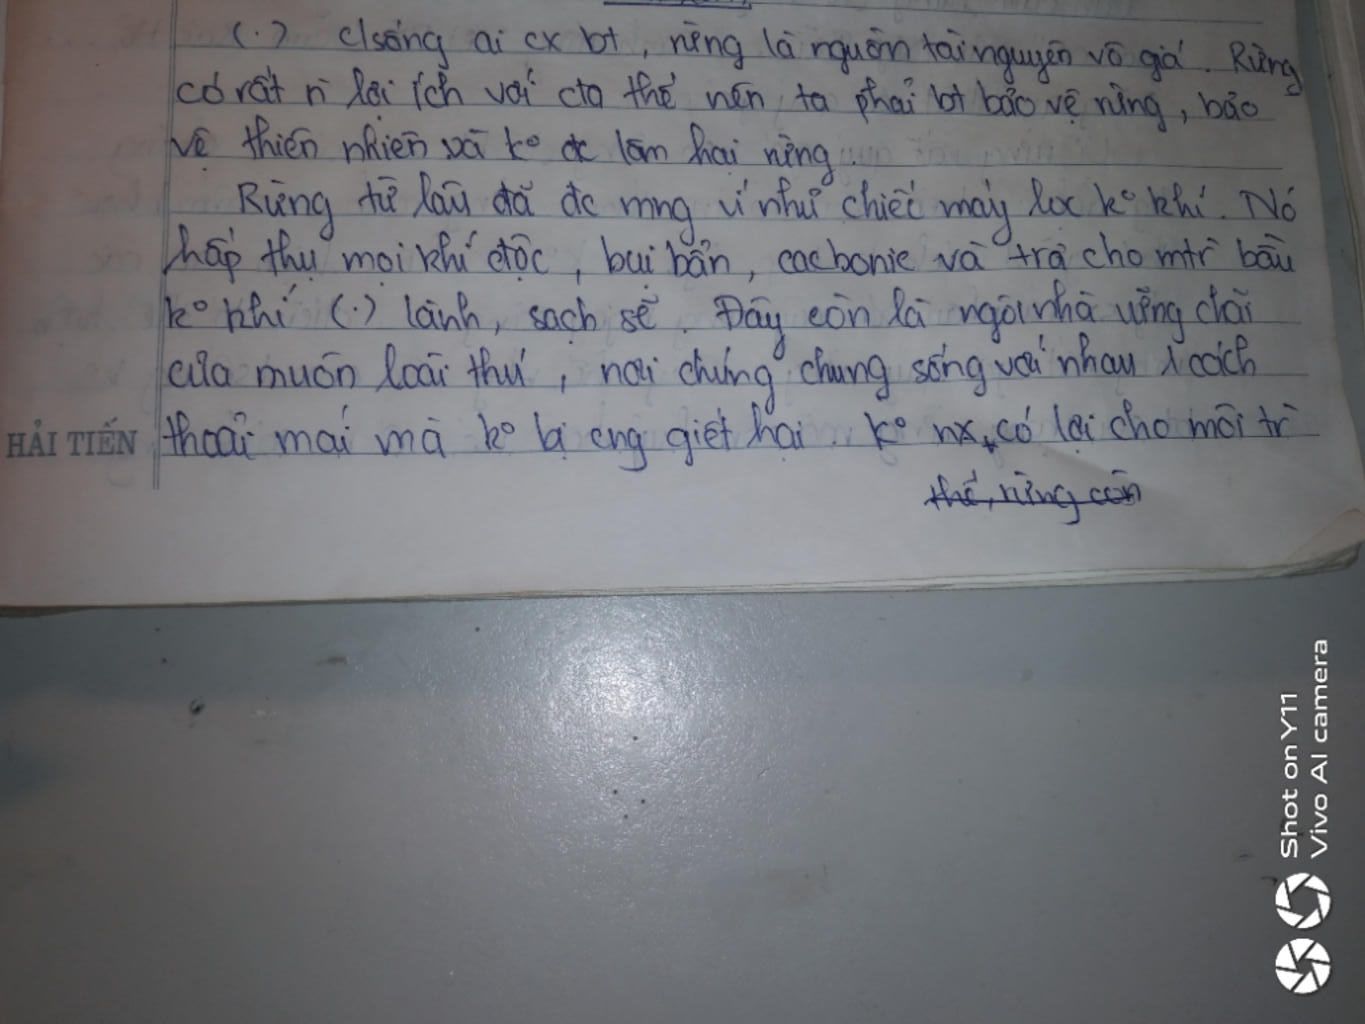 (.) c/sống ai cx bt, rừng là nguồn tài nguyên vô giá. Rừng
có rất n` lợi ích với cta thế nên ta phải bt bảo vệ rừng, bảo
vệ thiên nhiên và k° đc làm hại rừng.
Rừng từ lâu đã đc mng ví như chiếc máy lọc k° khí. Nó
hấp thụ mọi khí độc, bụi bẩn, cacbonic và trả cho mtr` bầu
k° khí (.) lành, sạch sẽ. Đây còn là ngôi nhà vững chãi
của muôn loài thú, nơi chúng chung sống với nhau 1 cách
thoải mái mà k° bị cng giết hại. k° nx có lợi cho môi tr`
thế, rừng còn
HẢI TIẾN
Shot on Y11
Vivo AI camera